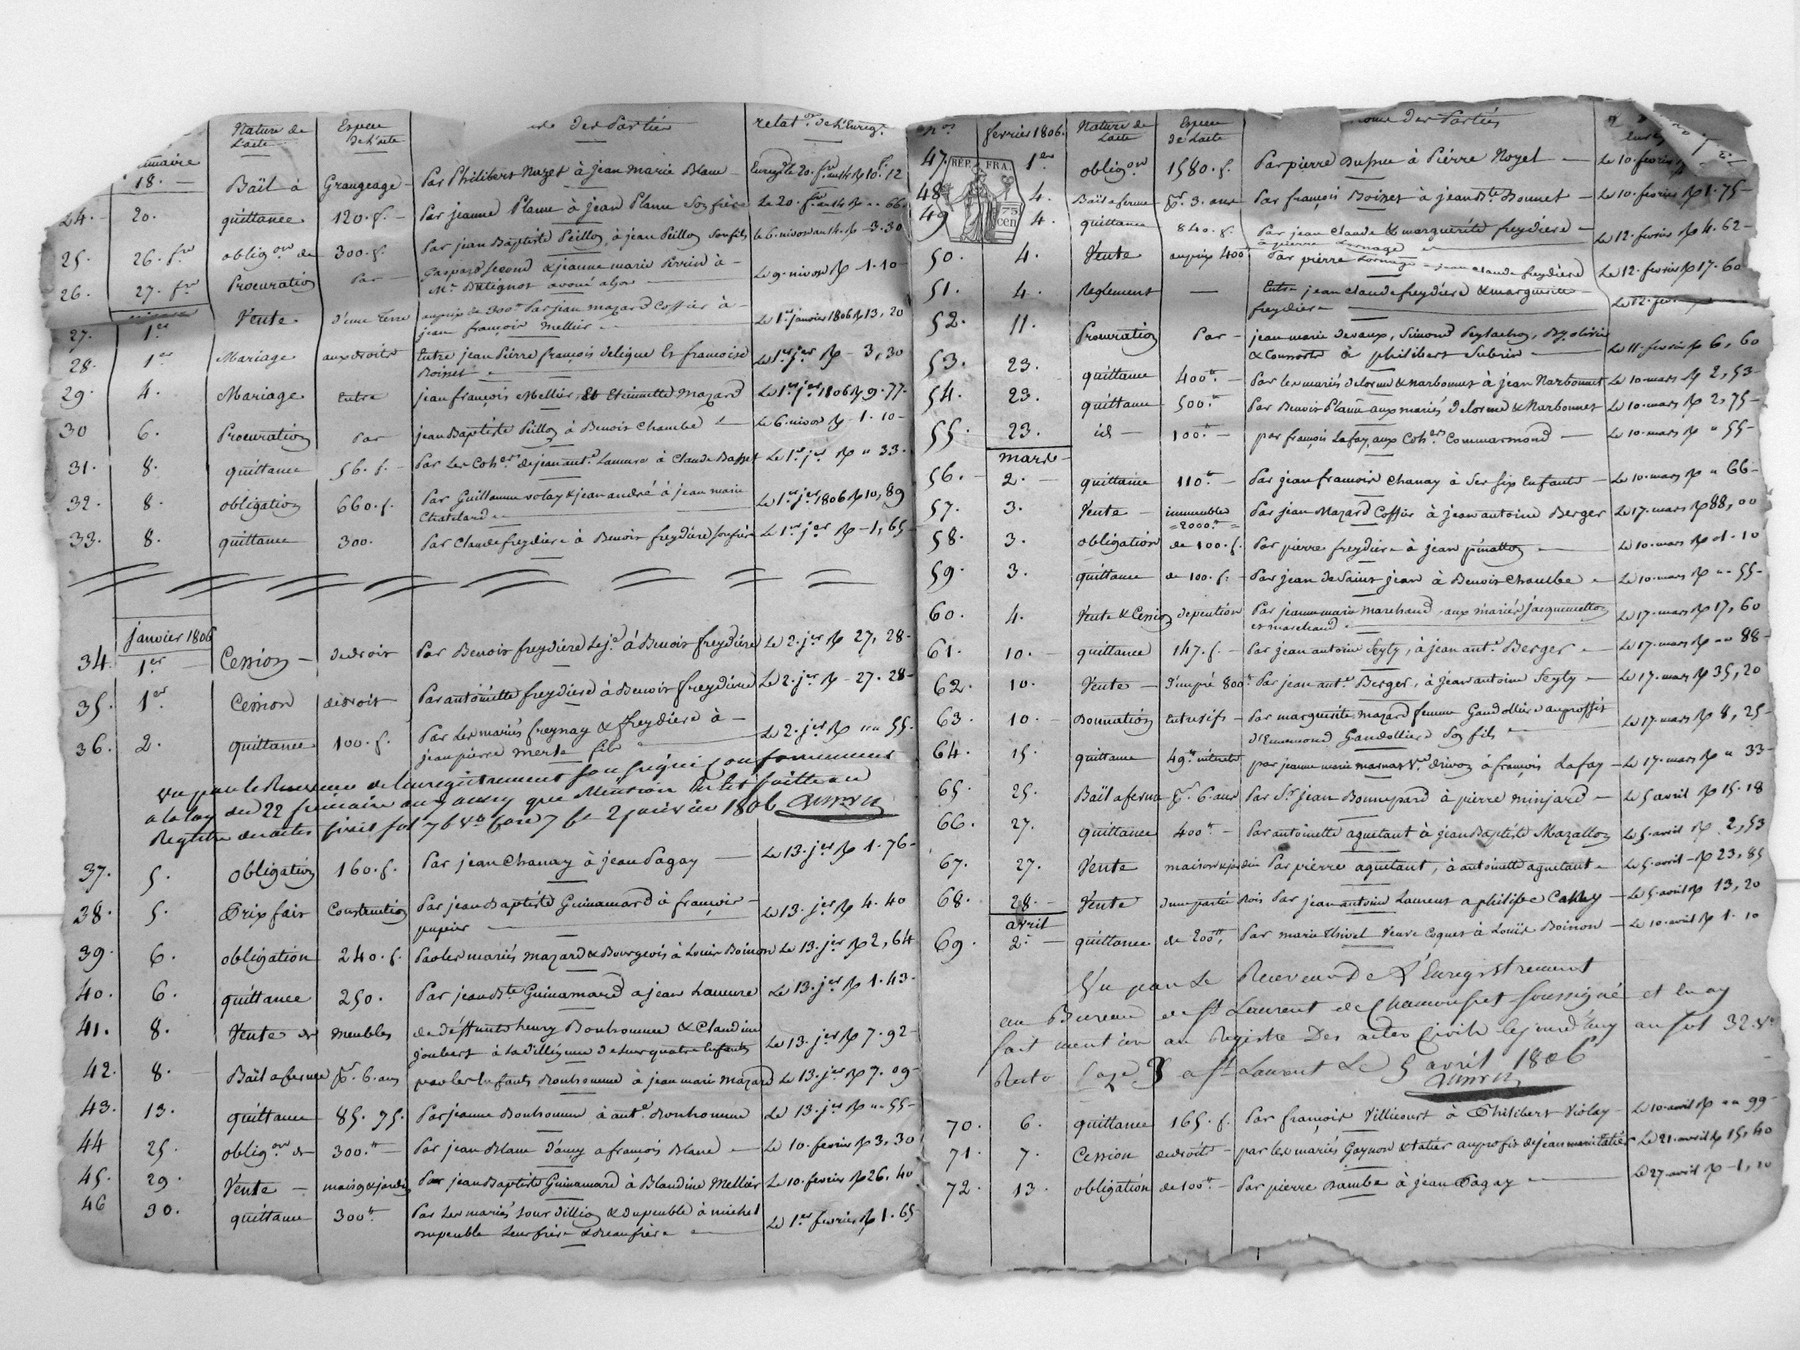 Nature de L'acte Espece De L'acte des Parties relat.on de L'Enreg.
18. — Bail à Grangeage — Par Philibert Nozet à Jean Marie Blanc —
24 — 20. quittance 120. f. — Par jeanne Plane à jean Plane Son frère Le 20.
25. 26. fre oblig.on de 300. f. Par jean Baptiste Peillon, à jean Peillon Son fils le 6. nivose an 14. R. 3.30
26. 27. fre Procuration Par — Gaspard second & jeanne marie Perrin à — Le 9. nivose R. 1.10 —
Mr. Dutignot avoué à Lyon
27. 1.er Vente d'une Terre au prix de 300.tt Par jean mazard Coffier à — Le 1.er janvier 1806 R. 13, 20
jean françois Mellier
28. 1.er Mariage aux droits Entre jean Pierre françois deligne Et françoise Le 1.er j.er R. — 3, 30
Boinet —
29. 4. Mariage Entre jean françois Mellier, Et Etiennette Mazard Le 1.er j.er 1806 R. 9.77.
30 6. Procuration Par jean Baptiste Peillon à Benoit Chambe — Le 6. nivose R. 1.10 —
31. 8. quittance 56. f. — Par Les Coh.ers de jean ant.e Laurent à Claude Basset Le 1.er j.er R. " 33.
32. 8. obligation 660. f. Par Guillaume volay & jean andré à jean marie Le 1.er j.er 1806 R. 10, 89
Chatelard —
33. 8. quittance 300. Par Claude freydiere à Benoit freydiere son frère Le 1.er j.er R. — 1, 65 —
janvier 1806
34. 1.er — Cession — de droit Par Benoit freydiere Le j.e à Benoit freydiere Le 2. j.er R. 27, 28 —
35. 1.er Cession de droit Par antoinette freydiere à Benoit freydiere Le 2. j.er R. — 27. 28 —
36. 2. quittance 100. f. Par Les mariés freynay & freydiere à — Le 2. j.er R. " 55.
jean pierre merle fils
vu par le Receveur de l'enregistrement soussigné conformément
a la loy du 22 frimaire an 7
Registre des actes civils fol 76 v.o Case 7 2 janvier 1806
37. 5. obligation 160. f. Par jean Chanay à jean Pagay — Le 13. j.er R. 1.76 —
38. 5. Prix fait Construction Par jean Baptiste Guinamard à françois — Le 13. j.er R. 4.40
39. 6. obligation 240. f. Par les mariés mazard & Bourgeois à Louis Boinon Le 13. j.er R. 2, 64
40. 6. quittance 250. Par jean B.te Guinamard a jean Laurent Le 13. j.er R. 1.43 —
41. 8. Vente de Meubles de deffunts henry Bonhomme & Claudine Le 13. j.er R. 7.92 —
joubert à la dilligence de Leur quatre Enfants
42. 8. — Bail a ferme Pr. 6. ans par les Enfants Bonhomme à jean marie mazard Le 13. j.er R. 7.09 —
43. 13. quittance 85. 75. Par jeanne Bonhomme à ant.e Bonhomme Le 13. j.er R. " 55 —
44 25. oblig.on de 300.tt — Par jean Blanc d'aucy a françois Blanc — Le 10. fevrier R. 3, 30
45. 29. Vente — maison & jardin Par jean Baptiste Guinamard à Blandine Mellier Le 10. fevrier R. 26, 40
46 30. quittance 300.tt Par Les mariés & dupeuble à michel Le 1.er fevrier R. 1.65 —
dupeuble Leur frère & Beaufrère —
N.os fevrier 1806. Nature de L'acte Espece de L'acte noms Des Parties
REP. FRA.
75 cen
47. 1.er oblig.on 1580. f. Par pierre Dupuy à Pierre Nozet — Le 10. fevrier
48 4. Bail a ferme Pr. 3. ans Par françois Boinet à jean B.te Bonnet — Le 10. fevrier R. 1.75 —
49 4. quittance 840. f. Par jean Claude & marguerite freydiere — Le 12. fevrier R. 4.62 —
à pierre Lornage —
50. 4. Vente au prix 400 Par pierre Lornage à jean Claude freydiere Le 12. fevrier R. 17.60
51. 4. Reglement — Entre jean Claude freydiere & marguerite — Le 12. fev.
freydiere —
52. 11. Procuration Par — jeanne marie devaux, Simond
& Consorts à philibert Subrin — Le 11. fevrier R. 6, 60
53. 23. quittance 400.tt — Par les mariés delorme & Narbonnet à jean Narbonnet Le 10. mars R. 2, 53 —
54. 23. quittance 500.tt Par Benoit Plane aux mariés delorme & Narbonnet Le 10. mars R. 2, 75 —
55. 23. id — 100.tt — par françois Lafay aux Coh.ers Commarmond — Le 10. mars R. " 55 —
mars
56. 2. — quittance 110.tt — Par jean francois Chanay à Ses Six Enfants — Le 10. mars R. " 66 —
57. 3. Vente — immeuble Par jean Mazard Coffier à jean antoine Berger Le 17. mars R. 88, 00
= 2000.tt =
58. 3. obligation de 100. f. Par pierre freydiere à jean pinatton — Le 10. mars R. 1.10
59. 3. quittance de 100. f. Par jean de Saint jean à Benoit Chambe — Le 10. mars R. " 55 —
60. 4. Vente & Cession de pention Par jeanne marie marchand aux mariés jacquemetton Le 17. mars R. 17, 60
et marchand —
61. 10. — quittance 147. f. — Par jean antoine Seyty, à jean ant.e Berger — Le 17. mars R. " 88 —
62. 10. Vente — d'un pré 800.tt Par jean ant.e Berger, à jean antoine Seyty — Le 17. mars R. 35, 20
63. 10. — Donnation entrevifs — Par marguerite mazard femme Gandolliere au proffit Le 17. mars R. 8, 25 —
d'Ennemond Gandolliere Son fils —
64. 15. quittance 49.tt interets par jeanne marie V.e à françois Lafay — Le 17. mars R. " 33 —
65. 25. Bail a ferme Pr. 6 ans Par S.r jean Bonnepard à pierre minjard — Le 5 avril R. 15.18
66. 27. quittance 400.tt — Par antoinette aguetant à jean Baptiste Mazallon Le 5. avril R. 2, 53
67. 27. Vente maison & jardin Par pierre aguetant, à antoinette aguetant — Le 5. avril — R. 23, 85
68. 28. — Vente d'une partie Bois Par jean antoine Laurent a philipe Cathy — Le 5. avril R. 13, 20
avril
69. 2. — quittance de 200.tt, Par marie Thivel Veuve Coquet à Louis Boinon — Le 10. avril R. 1.10
Vu par Le Receveur de L'Enregistrement
au Bureau de St. Laurent de Chamousset soussigné et en ay
fait mention au Registre Des actes Civils le jourd'huy au fol 32.
Recto Case 3 a St. Laurent Le 5 avril 1806
70. 6. quittance 165. f. Par françois Villecourt à Philibert Violay — Le 10. avril R. " 99 —
71. 7. Cession de droits — par les mariés Gaynon & tatier au profit de jean marie tatier Le 21. avril R. 15, 40
72. 13. obligation de 100.tt — Par pierre Bambe à jean Pagay — Le 27 avril R. — 1, 10